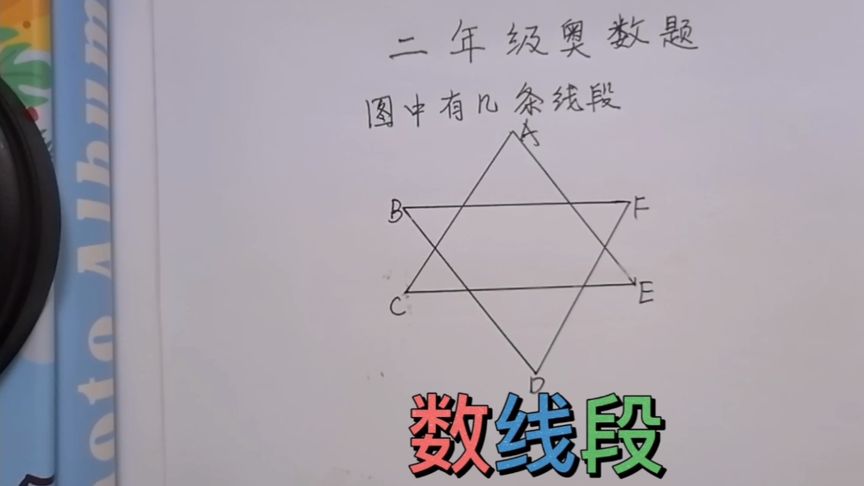 二年级奥数题
图中有几条线段
A
B
F
C
E
D
数线段
oto Album
oto